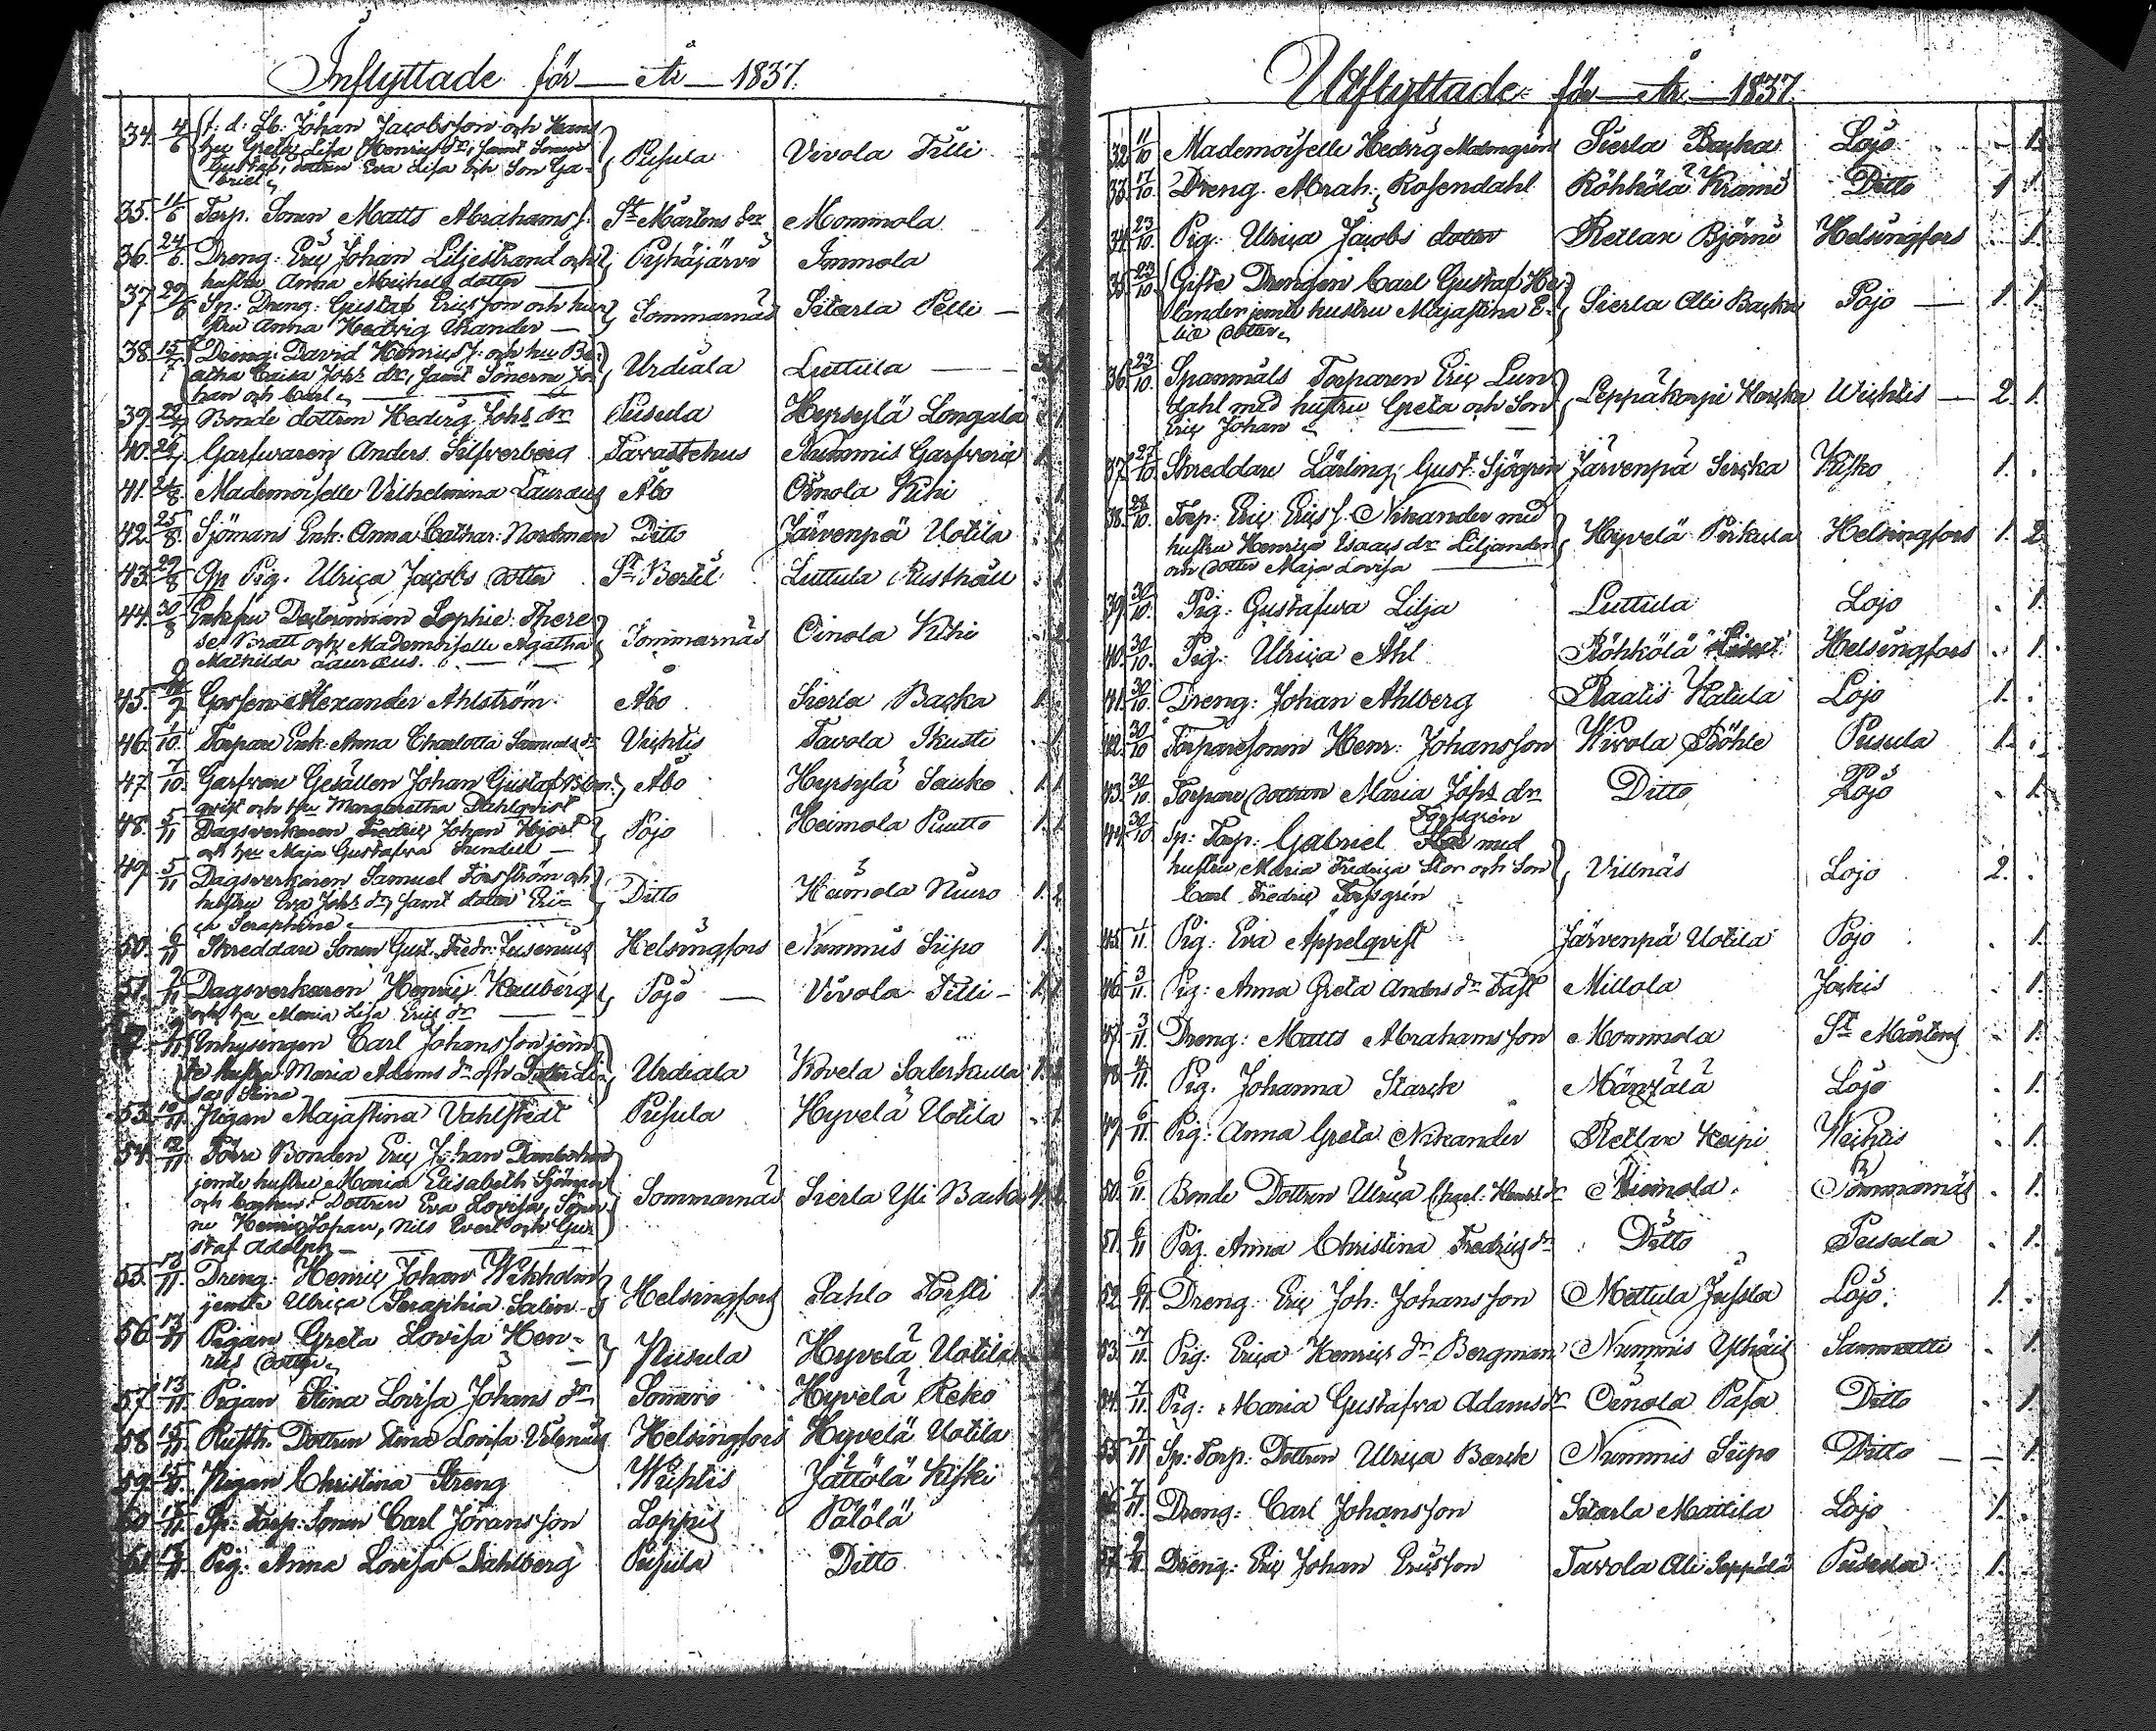 Inflyttade för År 1837.
34. 4/6 f. d. Johan Jacobsson och
hu Greta Lisa Henrics dr, samt Sonen
Gustaf, dottren Eva Lisa och Son Ga-
briel Pusula Vivola Tilli
35. 11/6 Torp. Sonen Matts Abrahams s. St Mårtens Mommola
36. 24/6 Dreng: Eric Johan Liljestrand och Pyhäjärvi Immola
hustru Anna Michels dotter
37. 29/6 Sp: Dreng: Gustaf Ericsson och hus- Sommarnäs Sitarla Pelli
tru Anna Hedvig Ekander
38. 15/7 Dreng: David Henrics s. och hu Be- Urdiala Luttula
atha Caisa Johs dr, samt Sönerne Jo-
han och Carl
39. Bonde dottren Hedvig Johs dr Pusula Hyrsylä Longala
40. Garfvaren Anders Silfverberg Tavastehus Nummis Garfveri
41. Mademoiselle Vilhelmina Lauraus Åbo Oinola Kihi
42. 25/8 Sjömans Enk: Anna Cathar: Nordman Ditto Järvenpä Uotila
43. 29/8 Pig. Ulrica Jacobs dotter St Bertil Luttula Rusthåll
44. 30/8 Enkfru Sophie There-
se Bratt och Mademoiselle Agatha Sommarnäs Oinola Kihi
Mathilda Lauræus.
45. Gossen Alexander Ahlström Åbo Sierla Backa 1.
46. 1/10 Torpare Enk: Anna Charlotta Samuels dr Vichtis Tavola Skutti
47. 7/10 Garfvare Gesällen Johan Gustaf Blom- Åbo Hyrsylä Sauko 1. 1
qvist och hu Margaretha Dahlqvist
48. 5/11 Dagsverkaren Fredric Johan Hjort Pojo Heimola Puutto 1. 1
och hu Maja Gustafva Sundell
49. 5/11 Dagsverkaren Samuel Forsström och
hustru Eva Johs dr, samt dotter Eri- Ditto Heimola Niuro 1. 2
ca Seraphine
50. 6/11 Skreddare Sonen Gust. Fredr: Jusenius Helsingfors Nummis Siipo 1.
51. 7/11 Dagsverkaren Henric Hauberg Pojo Vivola Tilli 1. 1
och hu Maria Lisa Erics dr
Inhysingen Carl Johansson jem-
te hustru Maria Adams dr och Dotter Li- Urdiala Kovela Salerkulla 1. 2
sa Stina
53. 10/11 Pigan Majastina Vahlstedt Pusula Hyvelä Uotila 1
54. 12/11 Förre Bonden Eric Johan
jemte hustru Maria Elisabeth Sjöman
och Dottren Eva Lovisa, Söner- Sommarnäs Sierla Yli Backa 4. 2
ne Henric Johan, Nils Evert och Gus-
taf Adolph
55. 13/11 Dreng: Henric Johan Wikholm
jemte Ulrica Seraphia Salin Helsingfors Sahlo Torsti 1. 1
56. 13/11 Pigan Greta Lovisa Hen-
rics dotter Pusula Hyvelä Uotila
57. 13/11 Pigan Stina Lovisa Johans dr Somero Hyvelä Reko
58. 15/11 Rusth. Dottren Stina Lovisa Helsingfors Hyvelä Uotila
59. 15/11 Pigan Christina Streng Wichtis Jättölä Kiski
60. Sp: Torp: Sonen Carl Göransson Loppis Pälölä
61. Pig: Anna Lovisa Dahlberg Pusula Ditto
Utflyttade för År 1837.
32. 11/10 Mademoiselle Hedvig Malmgrén Sierla Backa Lojo 1.
33. 17/10 Dreng. Abrah: Rosendahl Röhkölä Krami Ditto 1
34. 23/10 Pig: Ulrica Jacobs dotter Retlax Björni Helsingfors 1.
35. 23/10 Gifte Drengen Carl Gustaf He-
lander jemte hustru Majastina E- Sierla Ali Backa Pojo 1. 1.
lia dotter
36. 23/10 Spanmåls Torparen Eric Lun-
dahl med hustru Greta och Son Leppäkorpi Harcka Wichtis 2. 1.
Eric Johan
37. 27/10 Skreddare Lärling Gust: Sjögrén Järvenpä Sircka Kisko 1. .
38. 28/10 Torp: Eric Erics s. Nikander med
hustru Henrica Isaacs dr Liljander Hyvelä Pirkula Helsingfors 1. 2
och dotter Maja Lovisa
39. 30/10 Pig: Gustafva Lilja Luttula Lojo . 1.
40. 30/10 Pig: Ulrica Ahl Röhkölä Helsingfors . 1.
41. 30/10 Dreng: Johan Ahlberg Raatis Katula Lojo 1. .
42. 30/10 Torparesonen Henr: Johansson Wivola Böhle Pusula 1. .
43. 30/10 Torpare Dottren Maria Johs dr Ditto Lojo . 1.
44. 30/10 Sp: Torp: Gabriel Forssgrén med
hustru Maria Fredrica Stor och Son Villnäs Lojo 2. .
Carl Fredric Forssgrén
45. 1/11 Pig: Eva Appelqvist Järvenpä Uotila Pojo . 1.
46. 3/11 Pig: Anna Greta Anders dr Fast Millola Jockis . 1.
47. 3/11 Dreng: Matts Abrahamsson Mommola St Mårtens 1.
48. 4/11 Pig. Johanna Starck Mänzälä Lojo . 1.
49. 6/11 Pig: Anna Greta Nikander Retlax Keipi Wichtis . 1.
50. 6/11 Bonde Dottren Ulrica Charl. Henrics dr Niemola Sommarnäs . 1.
51. 6/11 Pig. Anna Christina Fredrics dr Ditto Pusula . 1.
52. 6/11 Dreng: Eric Joh: Johansson Mettula Jussila Lojo 1. .
53. 7/11 Pig: Erica Henrics dr Bergman Nummis Ylhäis Sammatti . 1.
54. 7/11 Pig: Maria Gustafva Adams dr Oinola Pasa Ditto . 1.
55. 7/11 Sp: Torp: Dottren Ulrica Barck Nummis Siipo Ditto 1.
56. 7/11 Dreng: Carl Johansson Sitarla Mattila Lojo 1. .
57. Dreng: Eric Johan Ericsson Tavola Ali Seppälä Pusula 1.